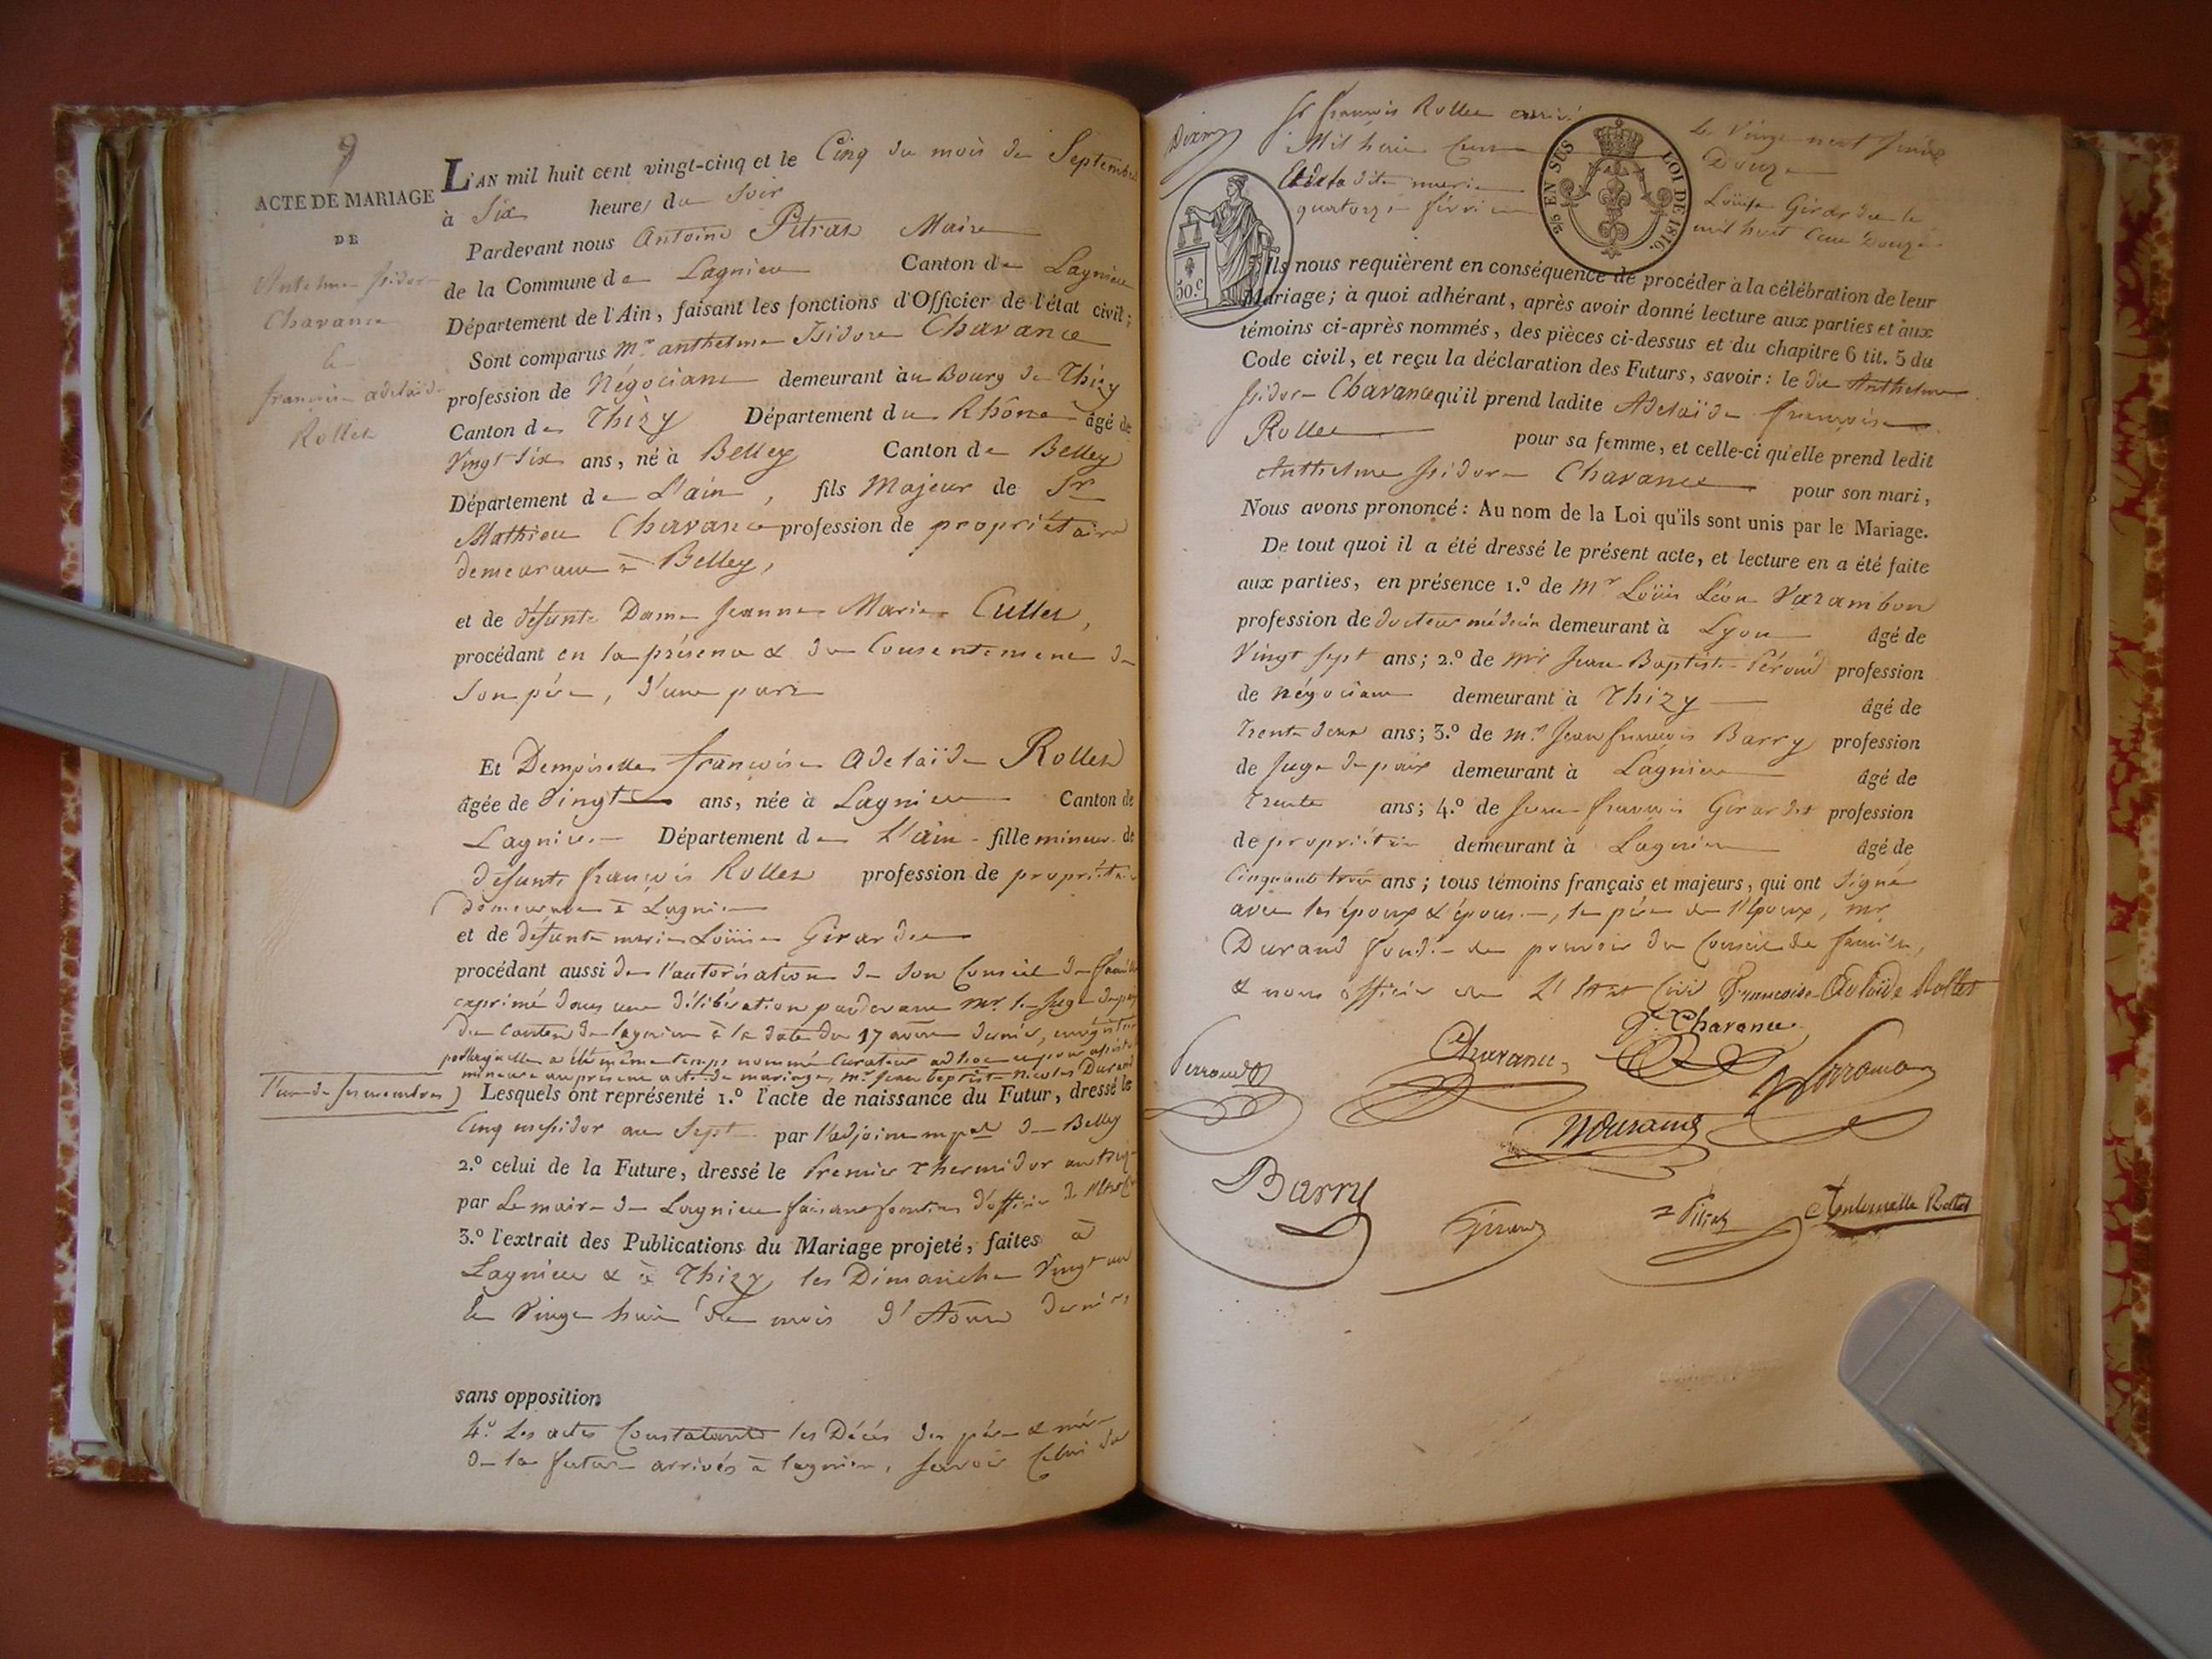 9
ACTE DE MARIAGE
DE
Anthelme Isidore
Chavance
&
françoise adelaïde
Rollet
L'AN mil huit cent vingt-cinq et le Cinq du mois de Septembre
à Six heures du Soir
Pardevant nous Antoine Pitrat Maire
de la Commune de Lagnieu Canton de Lagnieu
Département de l'Ain, faisant les fonctions d'Officier de l'état civil;
Sont comparus Mr. anthelme Isidore Chavance
profession de Négociant demeurant au Bourg de Thizy
Canton de Thizy Département du Rhône âgé de
Vingt six ans, né à Belley Canton de Belley
Département de L'ain, fils Majeur de Sr
Mathieu Chavance profession de propriétaire
demeurant à Belley,
et de défunte Dame Jeanne Marie Cullet,
procédant en la présence & du Consentement de
Son père, d'une part
Et Demoiselle françoise Adelaïde Rollet
âgée de Vingt ans, née à Lagnieu Canton de
Lagnieu Département de L'ain fille mineure de
défunt françois Rollet profession de propriétaire
demeurant à Lagnieu
et de défunte marie Loüise Girardet
procédant aussi de l'autorisation de Son Conseil de famille
exprimé dans une délibération pardevant Mr. le Juge de paix
du Canton de lagnieu à la date du 17 aout dernier, enregistrée
par laquelle a été même temps nommé Curateur ad hoc pour assister
mineure au présent acte de mariage, Mr. Jean baptiste Nicolas Durand
l'un de ses membres) Lesquels ont représenté 1.º l'acte de naissance du Futur, dressé le
Cinq messidor an Sept par l'adjoint mpal de Belley
2.º celui de la Future, dressé le Premier Thermidor an treize
par Le maire de Lagnieu faisant fonctions d'officier de l'état Civil
3.º l'extrait des Publications du Mariage projeté, faites à
Lagnieu & à Thizy, les Dimanche Vingt un
& Vingt huit du mois d'Aout dernier,
sans opposition
4.º Les actes Constatants les Décès des père & mère
de la future arrivés à lagnieu, Savoir Celui du
Sr françois Rollet arrivé le Vingt neuf
Mil huit Cent Douze
& de la dite marie Loüise Girardet le
quatorze févrie mil huit Cent Douze
50.c
2/5 EN SUS
LOI DE 1816.
Ils nous requièrent en conséquence de procéder à la célébration de leur
Mariage; à quoi adhérant, après avoir donné lecture aux parties et aux
témoins ci-après nommés, des pièces ci-dessus et du chapitre 6 tit. 5 du
Code civil, et reçu la déclaration des Futurs, savoir: le dit Anthelme
Isidore Chavance qu'il prend ladite Adelaïde françoise
Rollet pour sa femme, et celle-ci qu'elle prend ledit
Anthelme Isidore Chavance pour son mari,
Nous avons prononcé: Au nom de la Loi qu'ils sont unis par le Mariage.
De tout quoi il a été dressé le présent acte, et lecture en a été faite
aux parties, en présence 1.º de Mr Loüis Léon Varambon
profession de docteur médecin demeurant à Lyon âgé de
Vingt sept ans; 2.º de Mr Jean Baptiste profession
de négociant demeurant à Thizy âgé de
trente deux ans; 3.º de Mr Jean françois Barry profession
de Juge de paix demeurant à Lagnieu âgé de
trente ans; 4.º de Jean françois Girardet profession
de propriétaire demeurant à Lagnieu âgé de
Cinquante trois ans; tous témoins français et majeurs, qui ont Signé
avec les époux & épouse, le père de l'époux, Mr
Durand fondé de pouvoir du Conseil de famille,
& nous officier de L'état Civil Françoise Adelaïde Rollet
Chavance
Chavance
NDurand
Barry
Pitrat
Rollet